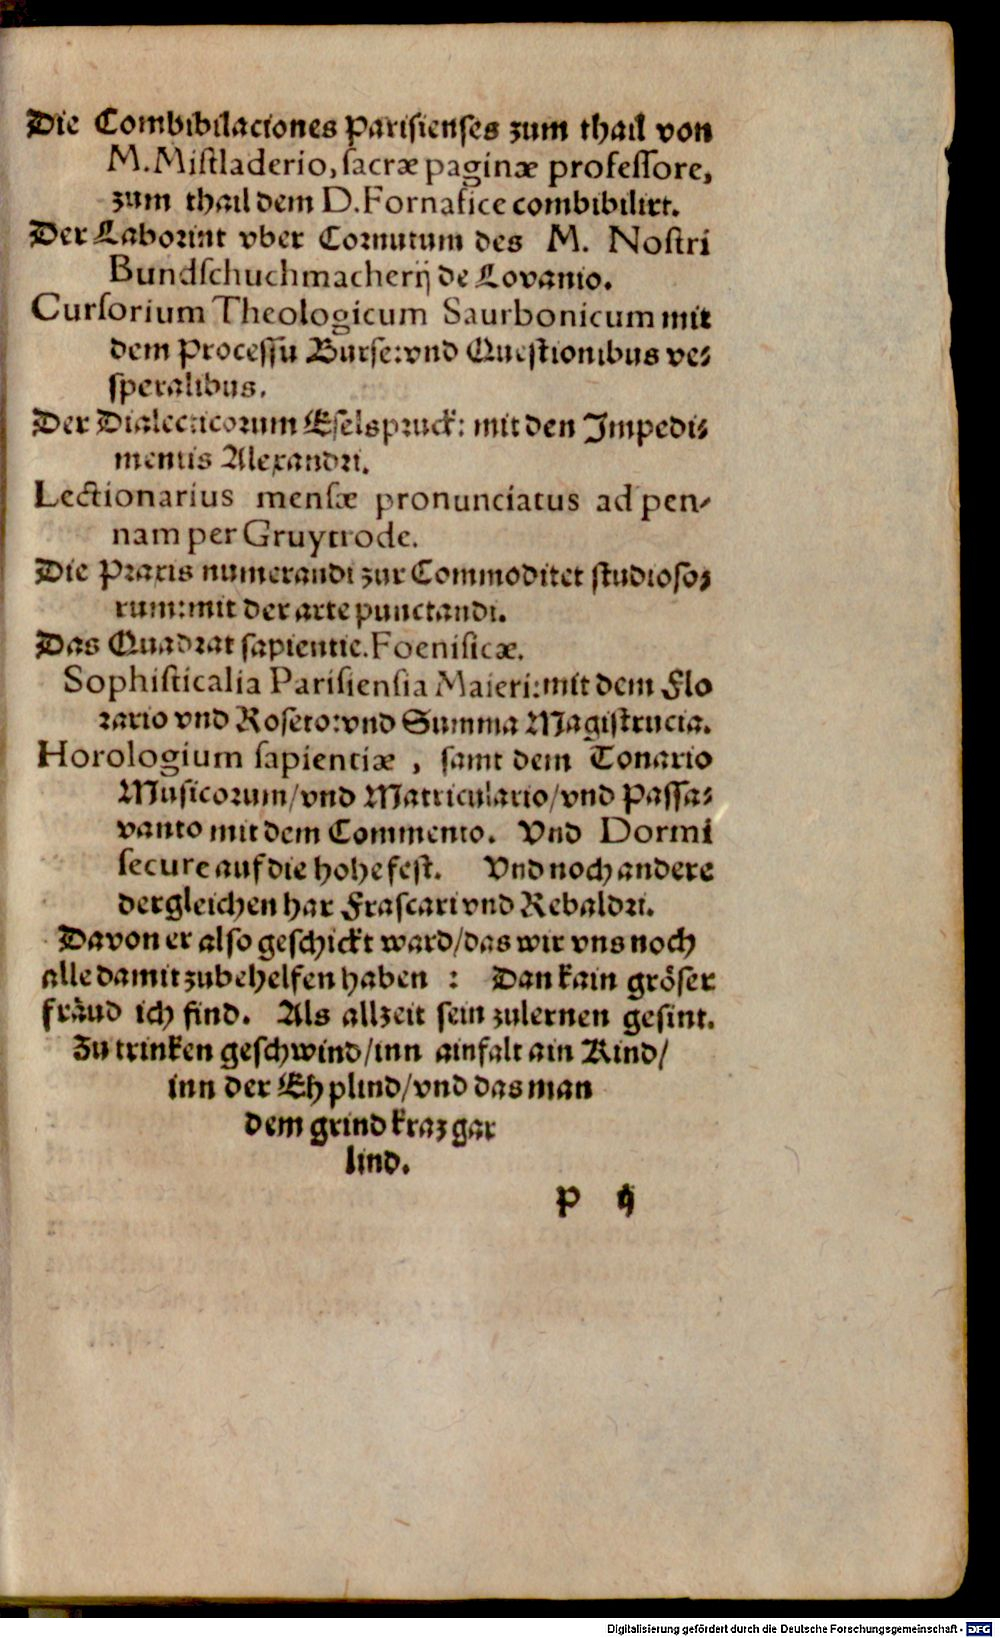 Die Combibilationes Parisienses zum thail von
M. Mistladerio, sacræ paginæ professore,
zum thail dem D. Fornasice combibilirt.
Der Laborint vber Cornutum des M. Nostri
Bundschuchmacherij de Lovanio.
Cursorium Theologicum Saurbonicum mit
dem Processu Burse: vnd Questionibus ve⸗
speralibus.
Der Dialecticorum Eselspruck: mit den Impedi⸗
mentis Alexandri.
Lectionarius mensæ pronunciatus ad pen-
nam per Gruytrode.
Die Praxis numerandi zur Commoditet studioso⸗
rum: mit der arte punctandi.
Das Quadrat sapientie. Foenisicæ.
Sophisticalia Parisiensia Maieri: mit dem Flo
rario vnd Roseto: vnd Summa Magistrucia.
Horologium sapientiæ, samt dem Tonario
Musicorum/ vnd Matriculario/ vnd Passa⸗
vanto mit dem Commento. Vnd Dormi
secure auf die hohe fest. Vnd noch andere
dergleichen har Frascari vnd Rebaldri.
Davon er also geschickt ward/ das wir vns noch
alle damit zubehelfen haben : Dan kain gröser
fräud ich find. Als allzeit sein zulernen gesint.
Zu trinken geschwind/ inn ainfalt ain Kind/
inn der Eh plind/ vnd das man
dem grind kraz gar
lind.
P ij
Digitalisierung gefördert durch die Deutsche Forschungsgemeinschaft - DFG